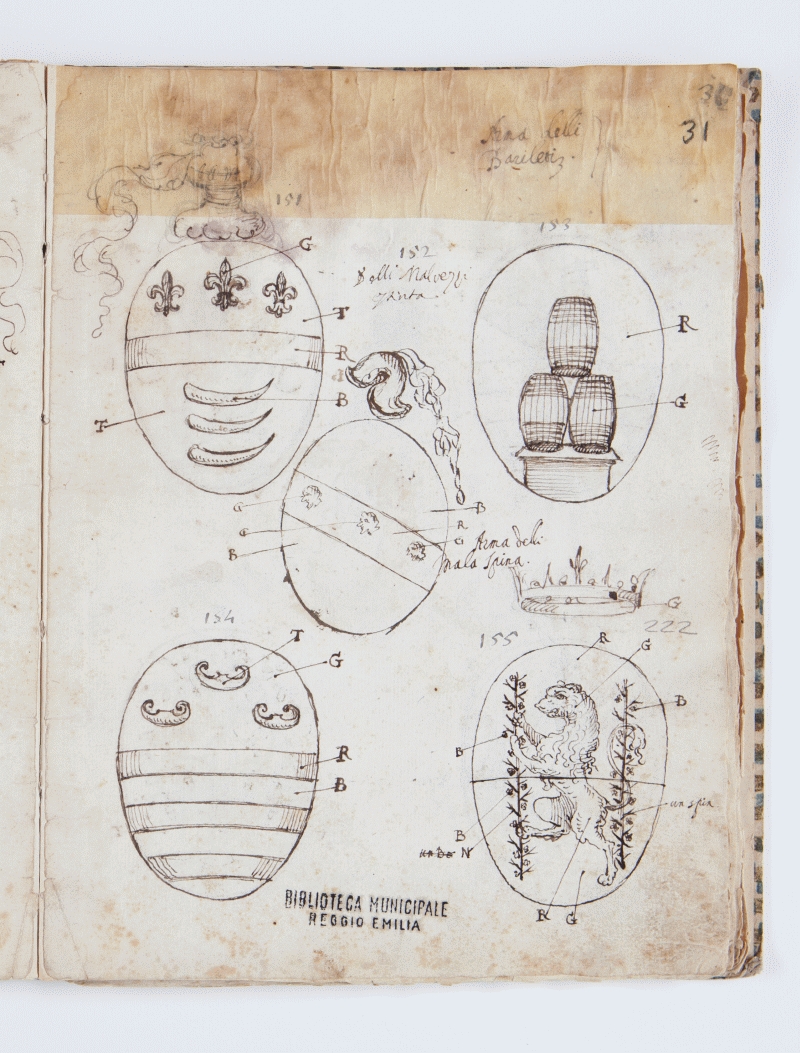 31
Arma delli
151
153
G
152
Delli Malvezzi
T
R
R
B
G
T
G
B
G
R
G
B
Arma deli
mala spina.
G
222
154
155
T
G
R
G
B
R
B
B
un spin
B
N
R G
BIBLIOTECA MUNICIPALE
REGGIO EMILIA